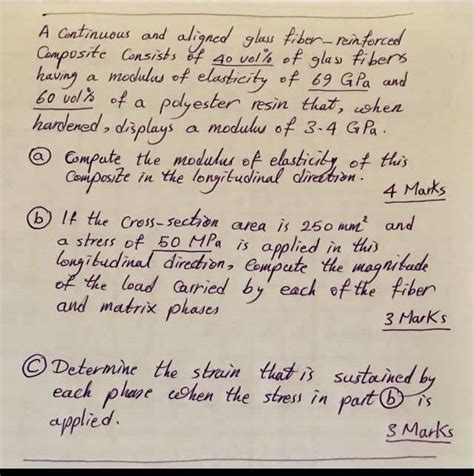 A Continuous and aligned glass fiber-reinforced
Composite Consists of 40 vol% of glass fibers
having a modulus of elasticity of 69 GPa and
60 vol% of a polyester resin that, when
hardened, displays a modulus of 3.4 GPa.
(a) Compute the modulus of elasticity of this
Composite in the longitudinal direction.
4 Marks
(b) If the Cross-section area is 250 mm² and
a stress of 50 MPa is applied in this
longitudinal direction, Compute the magnitude
of the load Carried by each of the fiber
and matrix phases
3 Marks
(C) Determine the strain that is sustained by
each phase when the stress in part (b) is
applied.
3 Marks